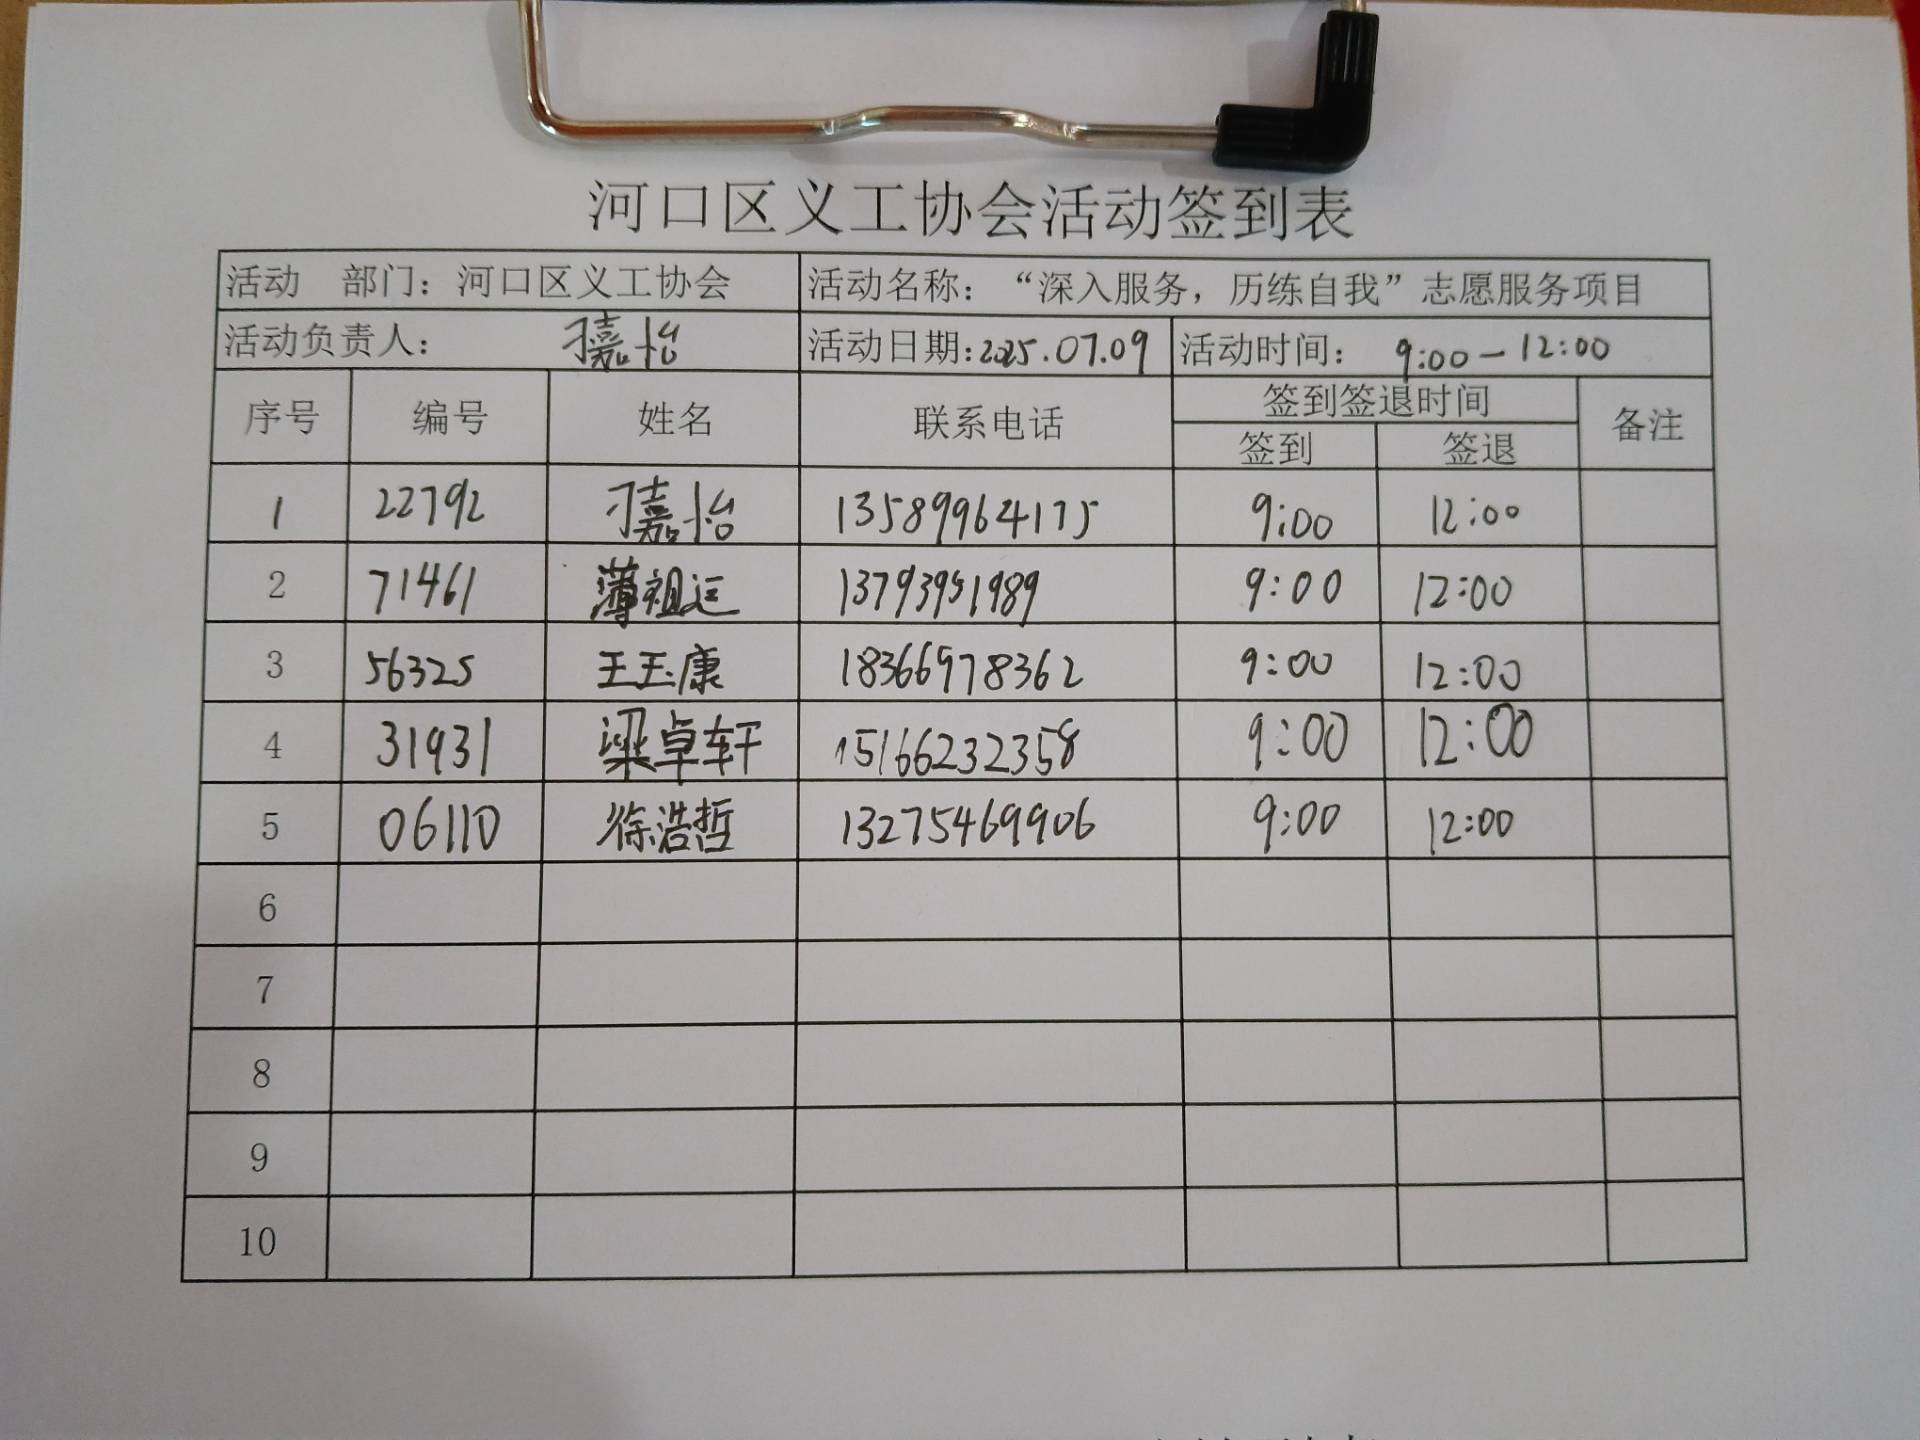 河口区义工协会活动签到表
活动 部门：河口区义工协会 活动名称：“深入服务，历练自我”志愿服务项目
活动负责人： 刁嘉怡 活动日期:2025.07.09 活动时间： 9:00-12:00
序号 编号 姓名 联系电话 签到签退时间 备注
签到 签退
1 22792 刁嘉怡 13589964175 9:00 12:00
2 71461 薄祖运 13793951989 9:00 12:00
3 56325 王玉康 18366978362 9:00 12:00
4 31931 梁卓轩 15166232358 9:00 12:00
5 06110 徐浩哲 13275469906 9:00 12:00
6
7
8
9
10